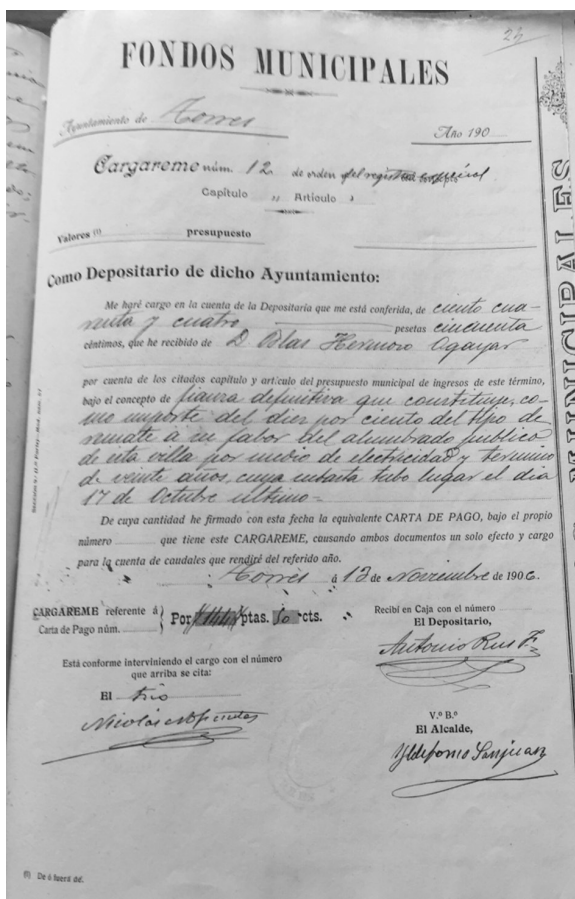 24
FONDOS MUNICIPALES
Ayuntamiento de Torres
Año 190
Cargareme núm. 12 de orden del registro especial
Capítulo " Artículo "
Valores (1) presupuesto
Como Depositario de dicho Ayuntamiento:
Me haré cargo en la cuenta de la Depositaría que me está conferida, de ciento cua-
renta y cuatro pesetas cincuenta
céntimos, que he recibido de D. Blas Hermoso Ogayar
por cuenta de los citados capítulo y artículo del presupuesto municipal de ingresos de este término,
bajo el concepto de fianza definitiva que constituye, co-
mo importe del diez por ciento del tipo de
remate á su fabor del alumbrado publico
de esta villa por medio de electricidad y termino
de veinte años, cuya subasta tubo lugar el dia
17 de Octubre ultimo=
De cuya cantidad he firmado con esta fecha la equivalente CARTA DE PAGO, bajo el propio
número que tiene este CARGAREME, causando ambos documentos un solo efecto y cargo
para la cuenta de caudales que rendiré del referido año.
Torres á 12 de Noviembre de 1906.
CARGAREME referente á
Carta de Pago núm.
Por 144 ptas. 50 cts.
Recibí en Caja con el número
El Depositario,
Antonio Rus F.
Está conforme interviniendo el cargo con el número
que arriba se cita:
El
Nicolás
V.º B.º
El Alcalde,
Yldefonso Sanjuan
(1) De ó fuera de.
MUNICIPALES